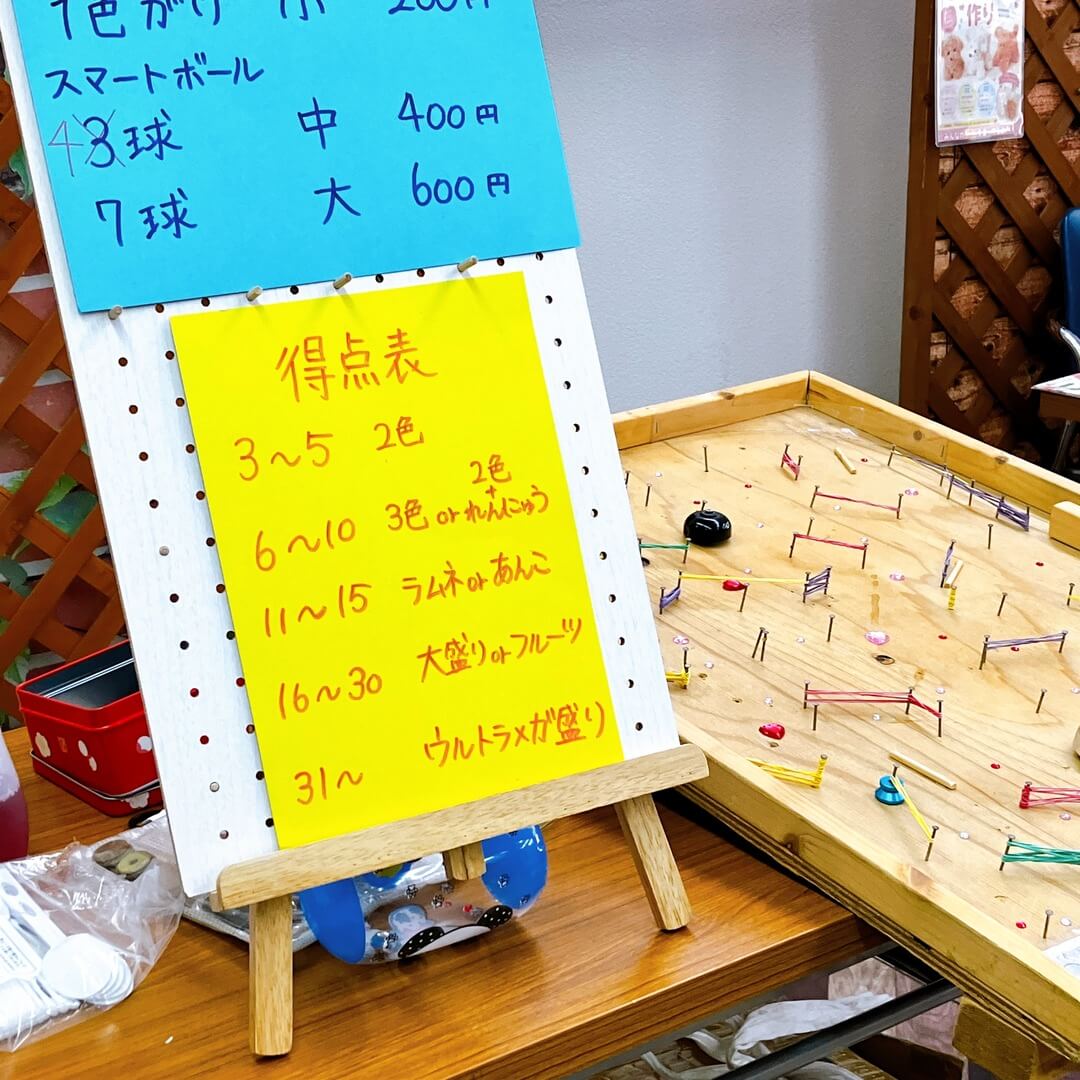 1色がけ 小 200円
スマートボール
4球 中 400円
7球 大 600円
得点表
3～5 2色
6～10 3色 or 2色+れんにゅう
11～15 ラムネ or あんこ
16～30 大盛り or フルーツ
31～ ウルトラメガ盛り
作り